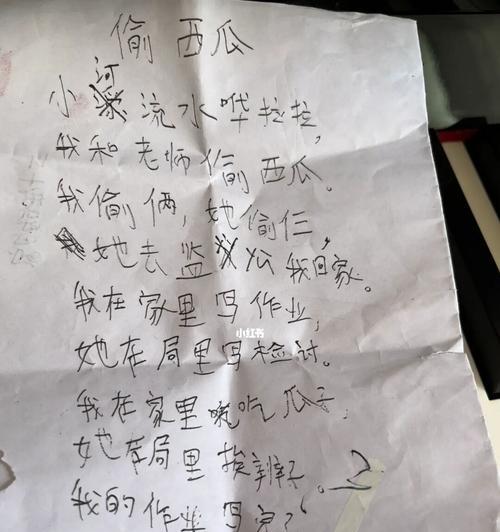 偷西瓜
小河流水哗拉拉,
我和老师偷西瓜。
我偷俩,她偷仨,
她去监公我回家。
我在家里写作业,
小红书
她在局里写检讨。
我在家里吃瓜子,
她在局里挨辨子。
我的作业写完了